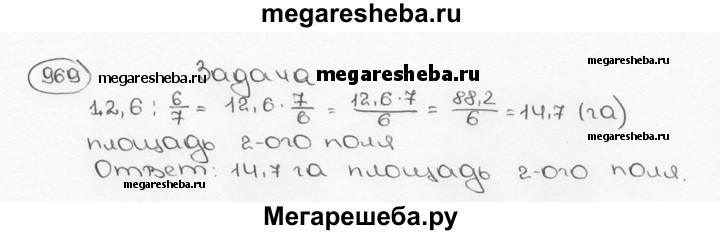 megaresheba.ru
969 megaresheba.ru Задача megaresheba.ru
12,6 : 6/7 = 12,6 · 7/6 = 12,6·7/6 = 88,2/6 = 14,7 (га)
площадь 2-ого поля
Ответ: 14,7 га площадь 2-ого поля.
megaresheba.ru megaresheba.ru
Мегарешеба.ру